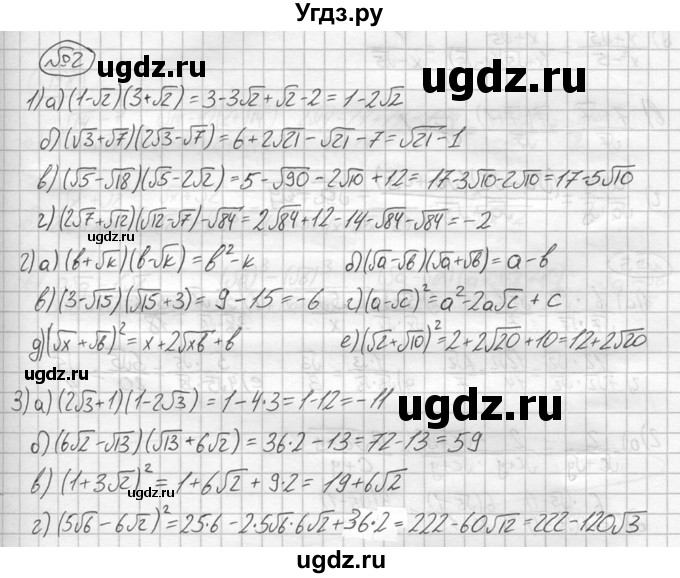 Угдз.ру
№2
ugdz.ru
1) а) (1-√2)(3+√2) = 3-3√2+√2-2 = 1-2√2
б) (√3+√7)(2√3-√7) = 6+2√21-√21-7 = √21-1
в) (√5-√18)(√5-2√2) = 5-√90-2√10+12 = 17-3√10-2√10 = 17-5√10
г) (2√7+√12)(√12-√7)-√84 = 2√84+12-14-√84-√84 = -2
ugdz.ru
2) а) (в+√к)(в-√к) = в²-к б) (√а-√в)(√а+√в) = а-в
в) (3-√15)(√15+3) = 9-15 = -6 г) (а-√с)² = а²-2а√с+с
д) (√х+√в)² = х+2√хв+в е) (√2+√10)² = 2+2√20+10 = 12+2√20
ugdz.ru
ugdz.ru
3) а) (2√3+1)(1-2√3) = 1-4·3 = 1-12 = -11
б) (6√2-√13)(√13+6√2) = 36·2-13 = 72-13 = 59
в) (1+3√2)² = 1+6√2+9·2 = 19+6√2
ugdz.ru
г) (5√6-6√2)² = 25·6-2·5√6·6√2+36·2 = 222-60√12 = 222-120√3
ugdz.ru